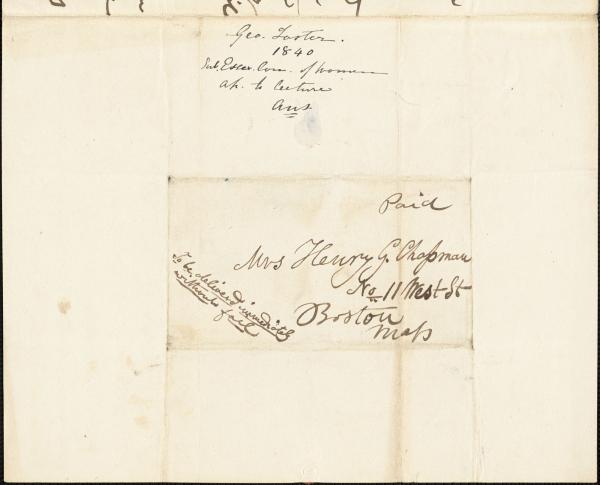 Geo. Foster.
1840
Sub. Essex. Com. of women
ap. to lecture
Ans
Paid
Mrs Henry G. Chapman
No 11 West St
Boston
Mass
To be delivered immediately
without fail